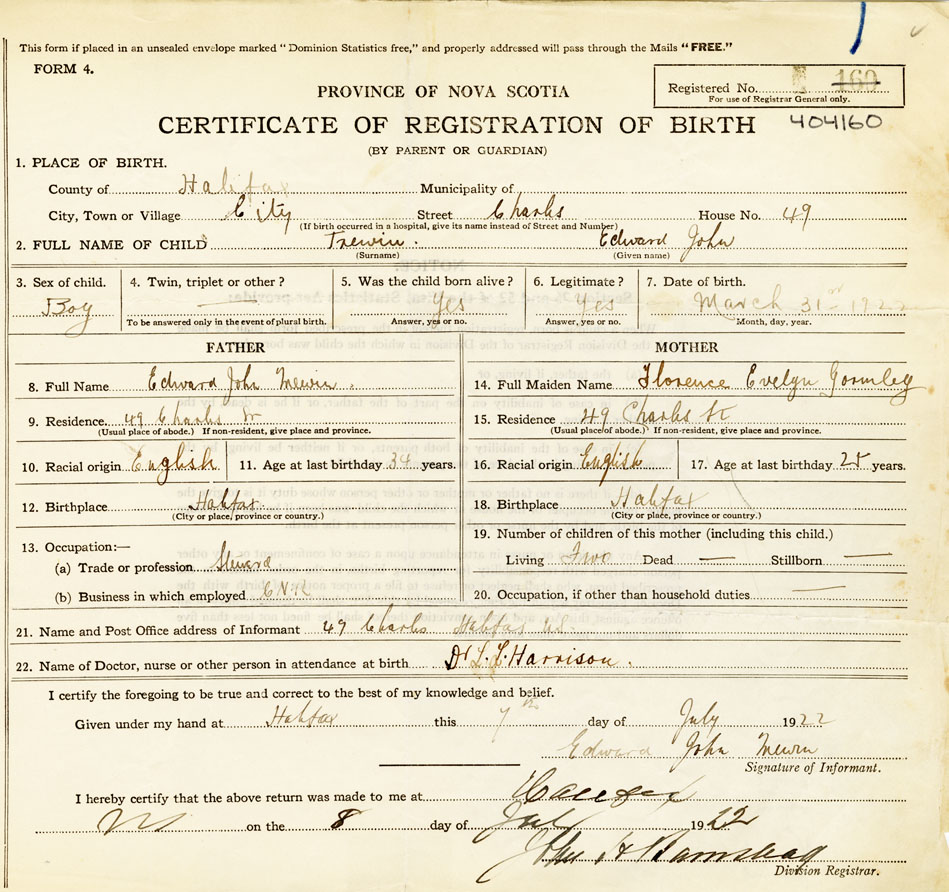 This form if placed in an unsealed envelope marked "Dominion Statistics free," and properly addressed will pass through the Mails "FREE."
FORM 4.
Registered No. 160
For use of Registrar General only.
PROVINCE OF NOVA SCOTIA
CERTIFICATE OF REGISTRATION OF BIRTH 404160
(BY PARENT OR GUARDIAN)
1. PLACE OF BIRTH.
County of Halifax Municipality of
City, Town or Village City Street Charles House No. 49
(If birth occurred in a hospital, give its name instead of Street and Number)
2. FULL NAME OF CHILD Trewin. Edward John
(Surname) (Given name)
3. Sex of child. 4. Twin, triplet or other? 5. Was the child born alive? 6. Legitimate? 7. Date of birth.
Boy — Yes Yes March 31st 1922
To be answered only in the event of plural birth. Answer, yes or no. Answer, yes or no. Month, day, year.
FATHER MOTHER
8. Full Name Edward John Trewin. 14. Full Maiden Name Florence Evelyn Gormley
9. Residence 49 Charles St 15. Residence 49 Charles St
(Usual place of abode.) If non-resident, give place and province. (Usual place of abode.) If non-resident, give place and province.
10. Racial origin English 11. Age at last birthday 34 years. 16. Racial origin English 17. Age at last birthday 25 years.
12. Birthplace Halifax 18. Birthplace Halifax
(City or place, province or country.) (City or place, province or country.)
13. Occupation:— 19. Number of children of this mother (including this child.)
(a) Trade or profession Steward Living Two Dead — Stillborn —
(b) Business in which employed C.N.R 20. Occupation, if other than household duties —
21. Name and Post Office address of Informant 49 Charles Halifax N.S.
22. Name of Doctor, nurse or other person in attendance at birth Dr L. L. Harrison.
I certify the foregoing to be true and correct to the best of my knowledge and belief.
Given under my hand at Halifax this 7th day of July 1922
Edward John Trewin
Signature of Informant.
I hereby certify that the above return was made to me at Halifax
NS on the 8 day of July 1922
John H
Division Registrar.